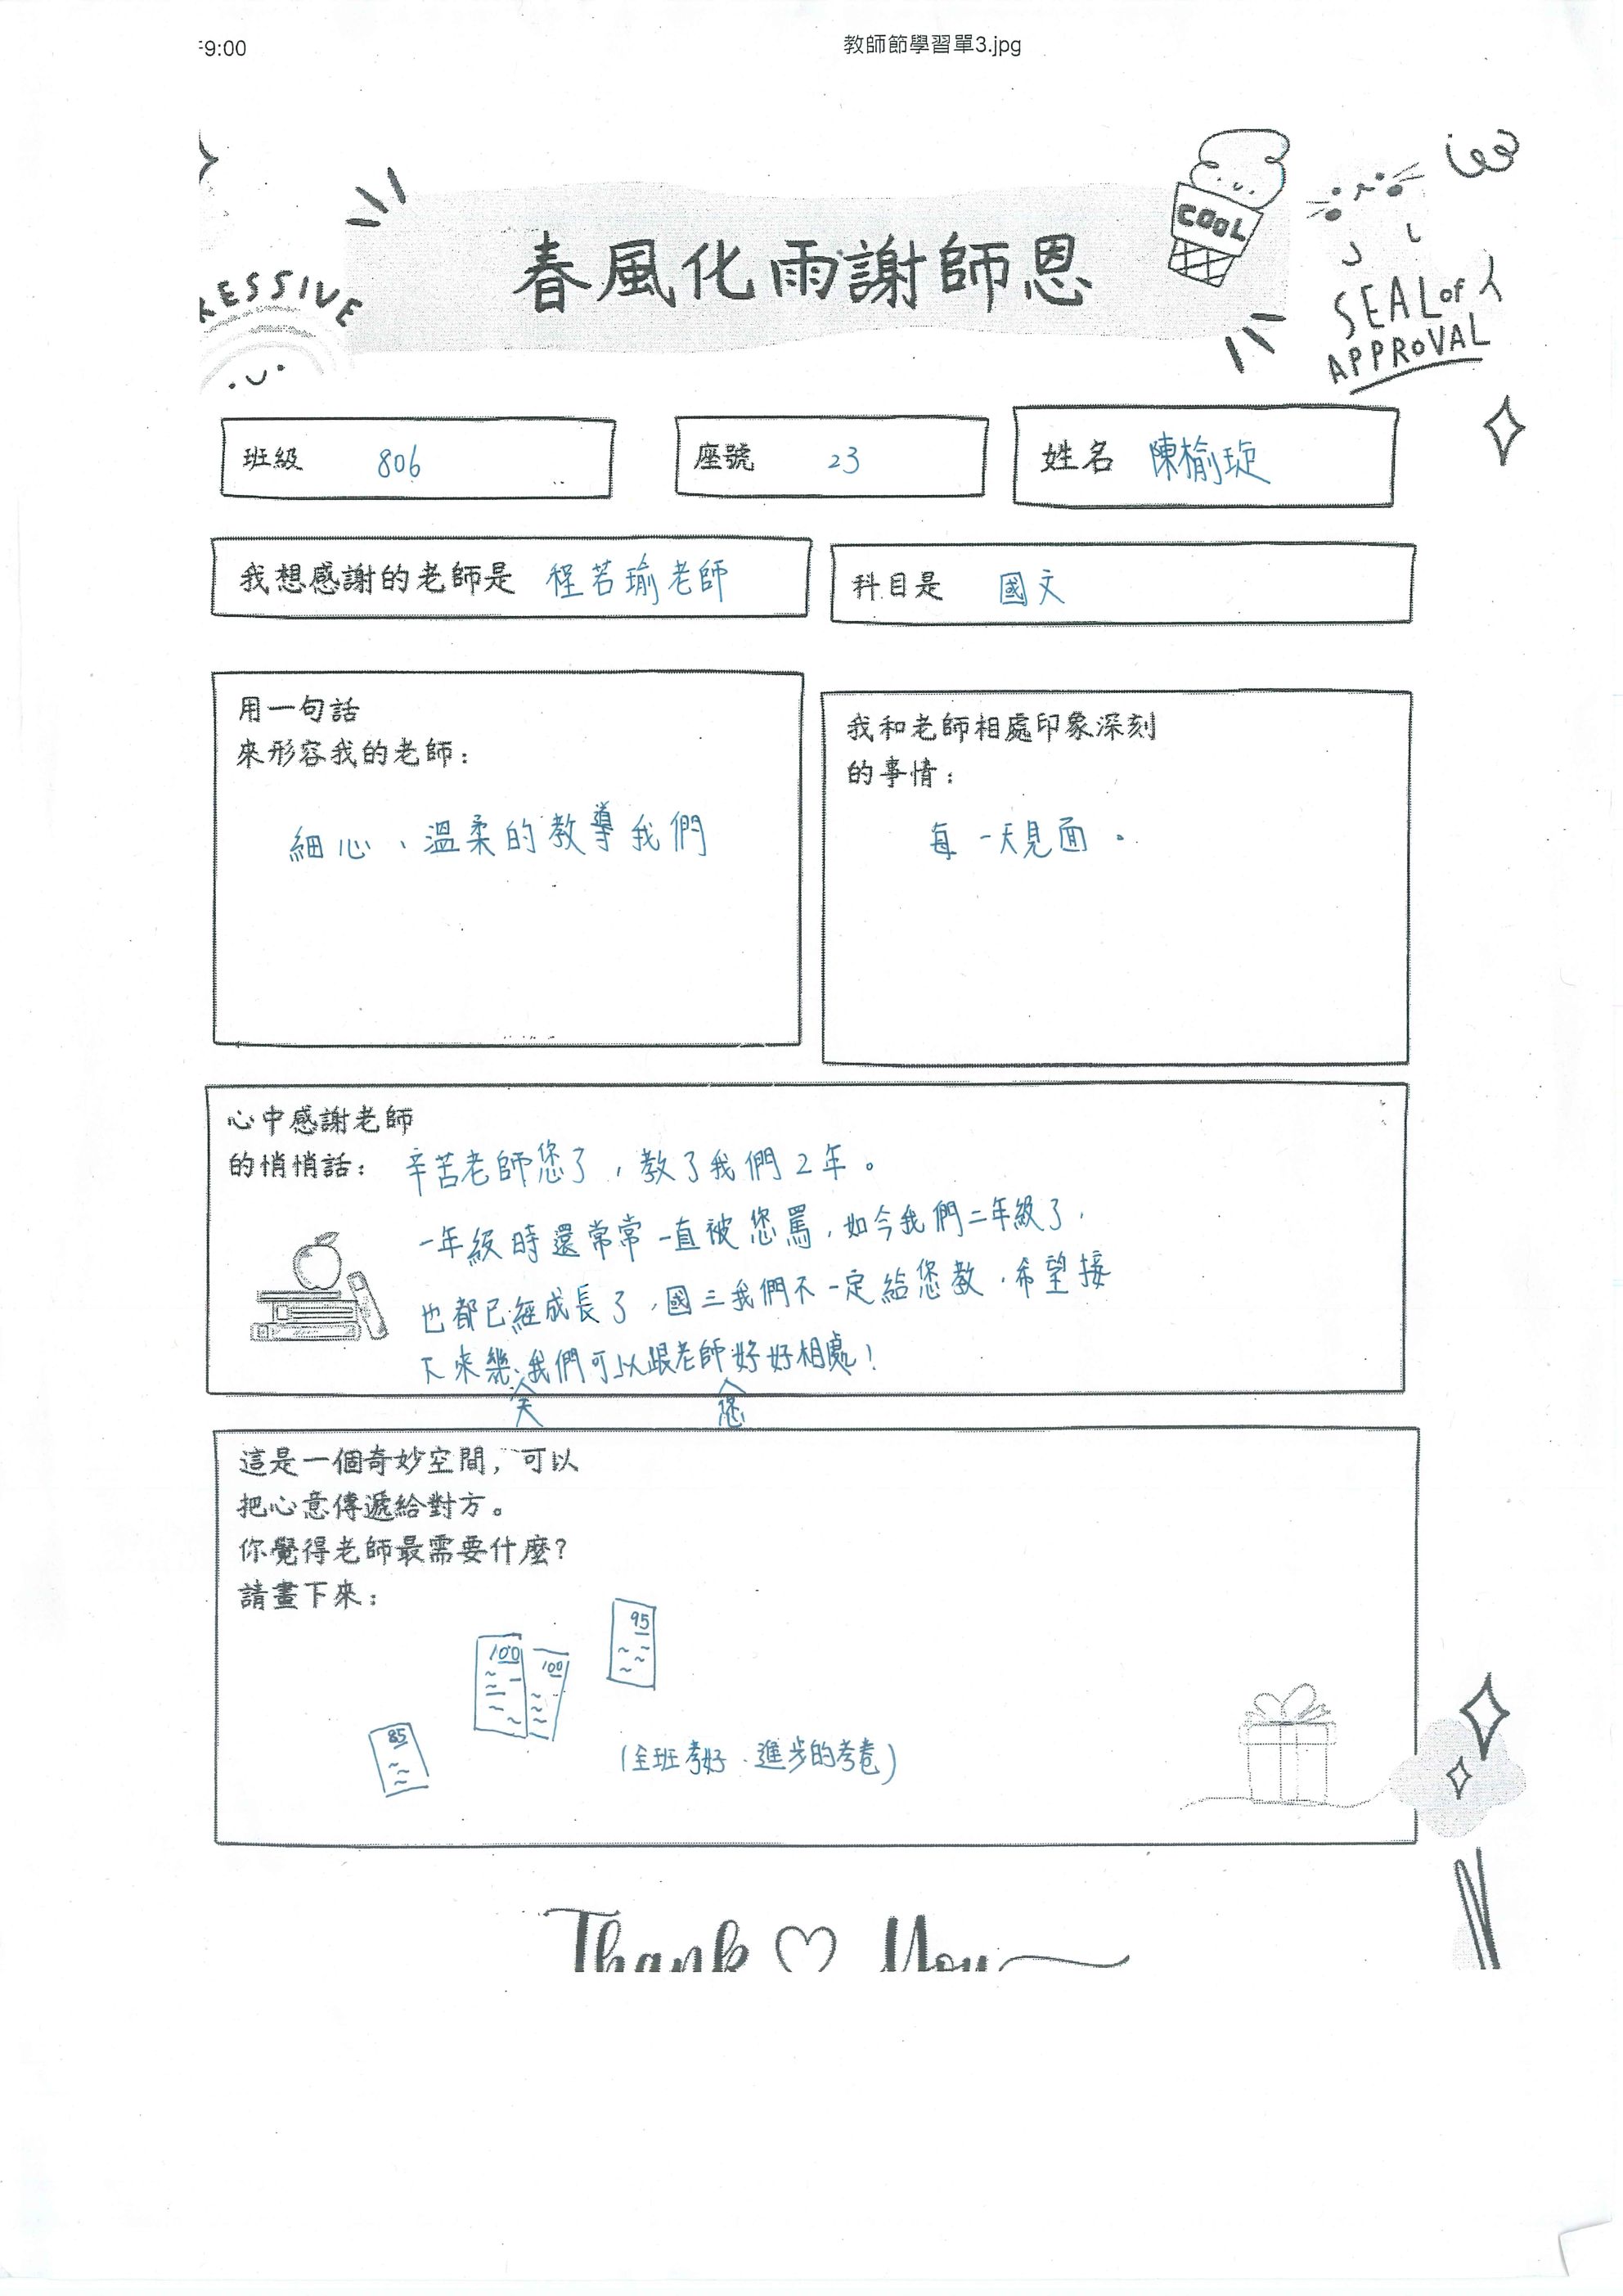 9:00
教師節學習單3.jpg
COOL
SEAL of
APPROVAL
RESSIVE
春風化雨謝師恩
班級 806
座號 23
姓名 陳榆琁
我想感謝的老師是 程若瑜老師
科目是 國文
用一句話
來形容我的老師：
細心、溫柔的教導我們
我和老師相處印象深刻
的事情：
每一天見面。
心中感謝老師
的悄悄話： 辛苦老師您了，教了我們2年。
一年級時還常常一直被您罵，如今我們二年級了，
也都已經成長了，國三我們不一定給您教，希望接
下來幾天我們可以跟老師您好好相處！
這是一個奇妙空間，可以
把心意傳遞給對方。
你覺得老師最需要什麼？
請畫下來：
95
100
100
85
(全班考好、進步的考卷)
Thank You